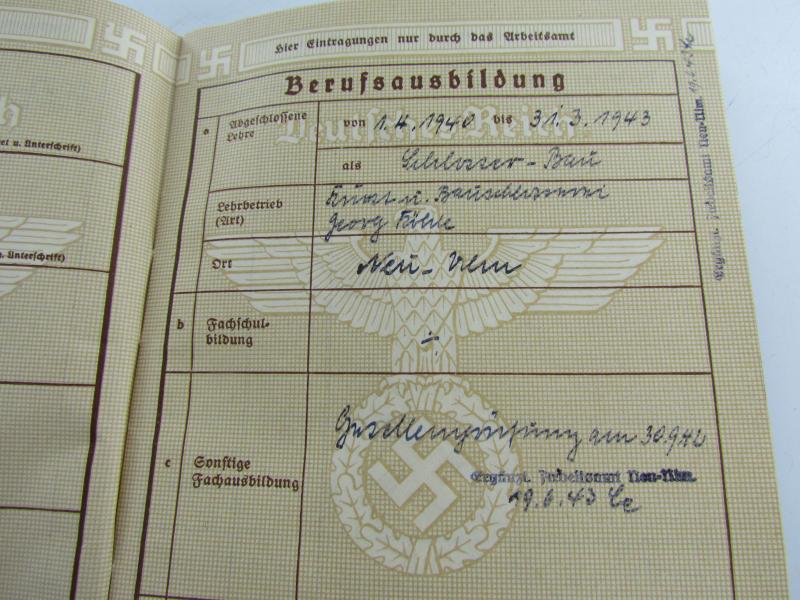 Hier Eintragungen nur durch das Arbeitsamt
Berufsausbildung
a
Abgeschlossene
Lehre
von 1.4.1940 bis 31.3.1943
Deutsches Reich
als Schlosser - Bau
Lehrbetrieb
(Art)
Kunst u. Bauschlosserei
Georg
Ort
Neu-Ulm
b
Fachschul-
bildung
÷
c
Sonstige
Fachausbildung
Gesellenprüfung am 30.9.42
Ergänzt. Arbeitsamt Neu-Ulm
19.6.43
Ergänzt. Arbeitsamt Neu-Ulm 19.6.43
ch
et u. Unterschrift)
. Unterschrift)